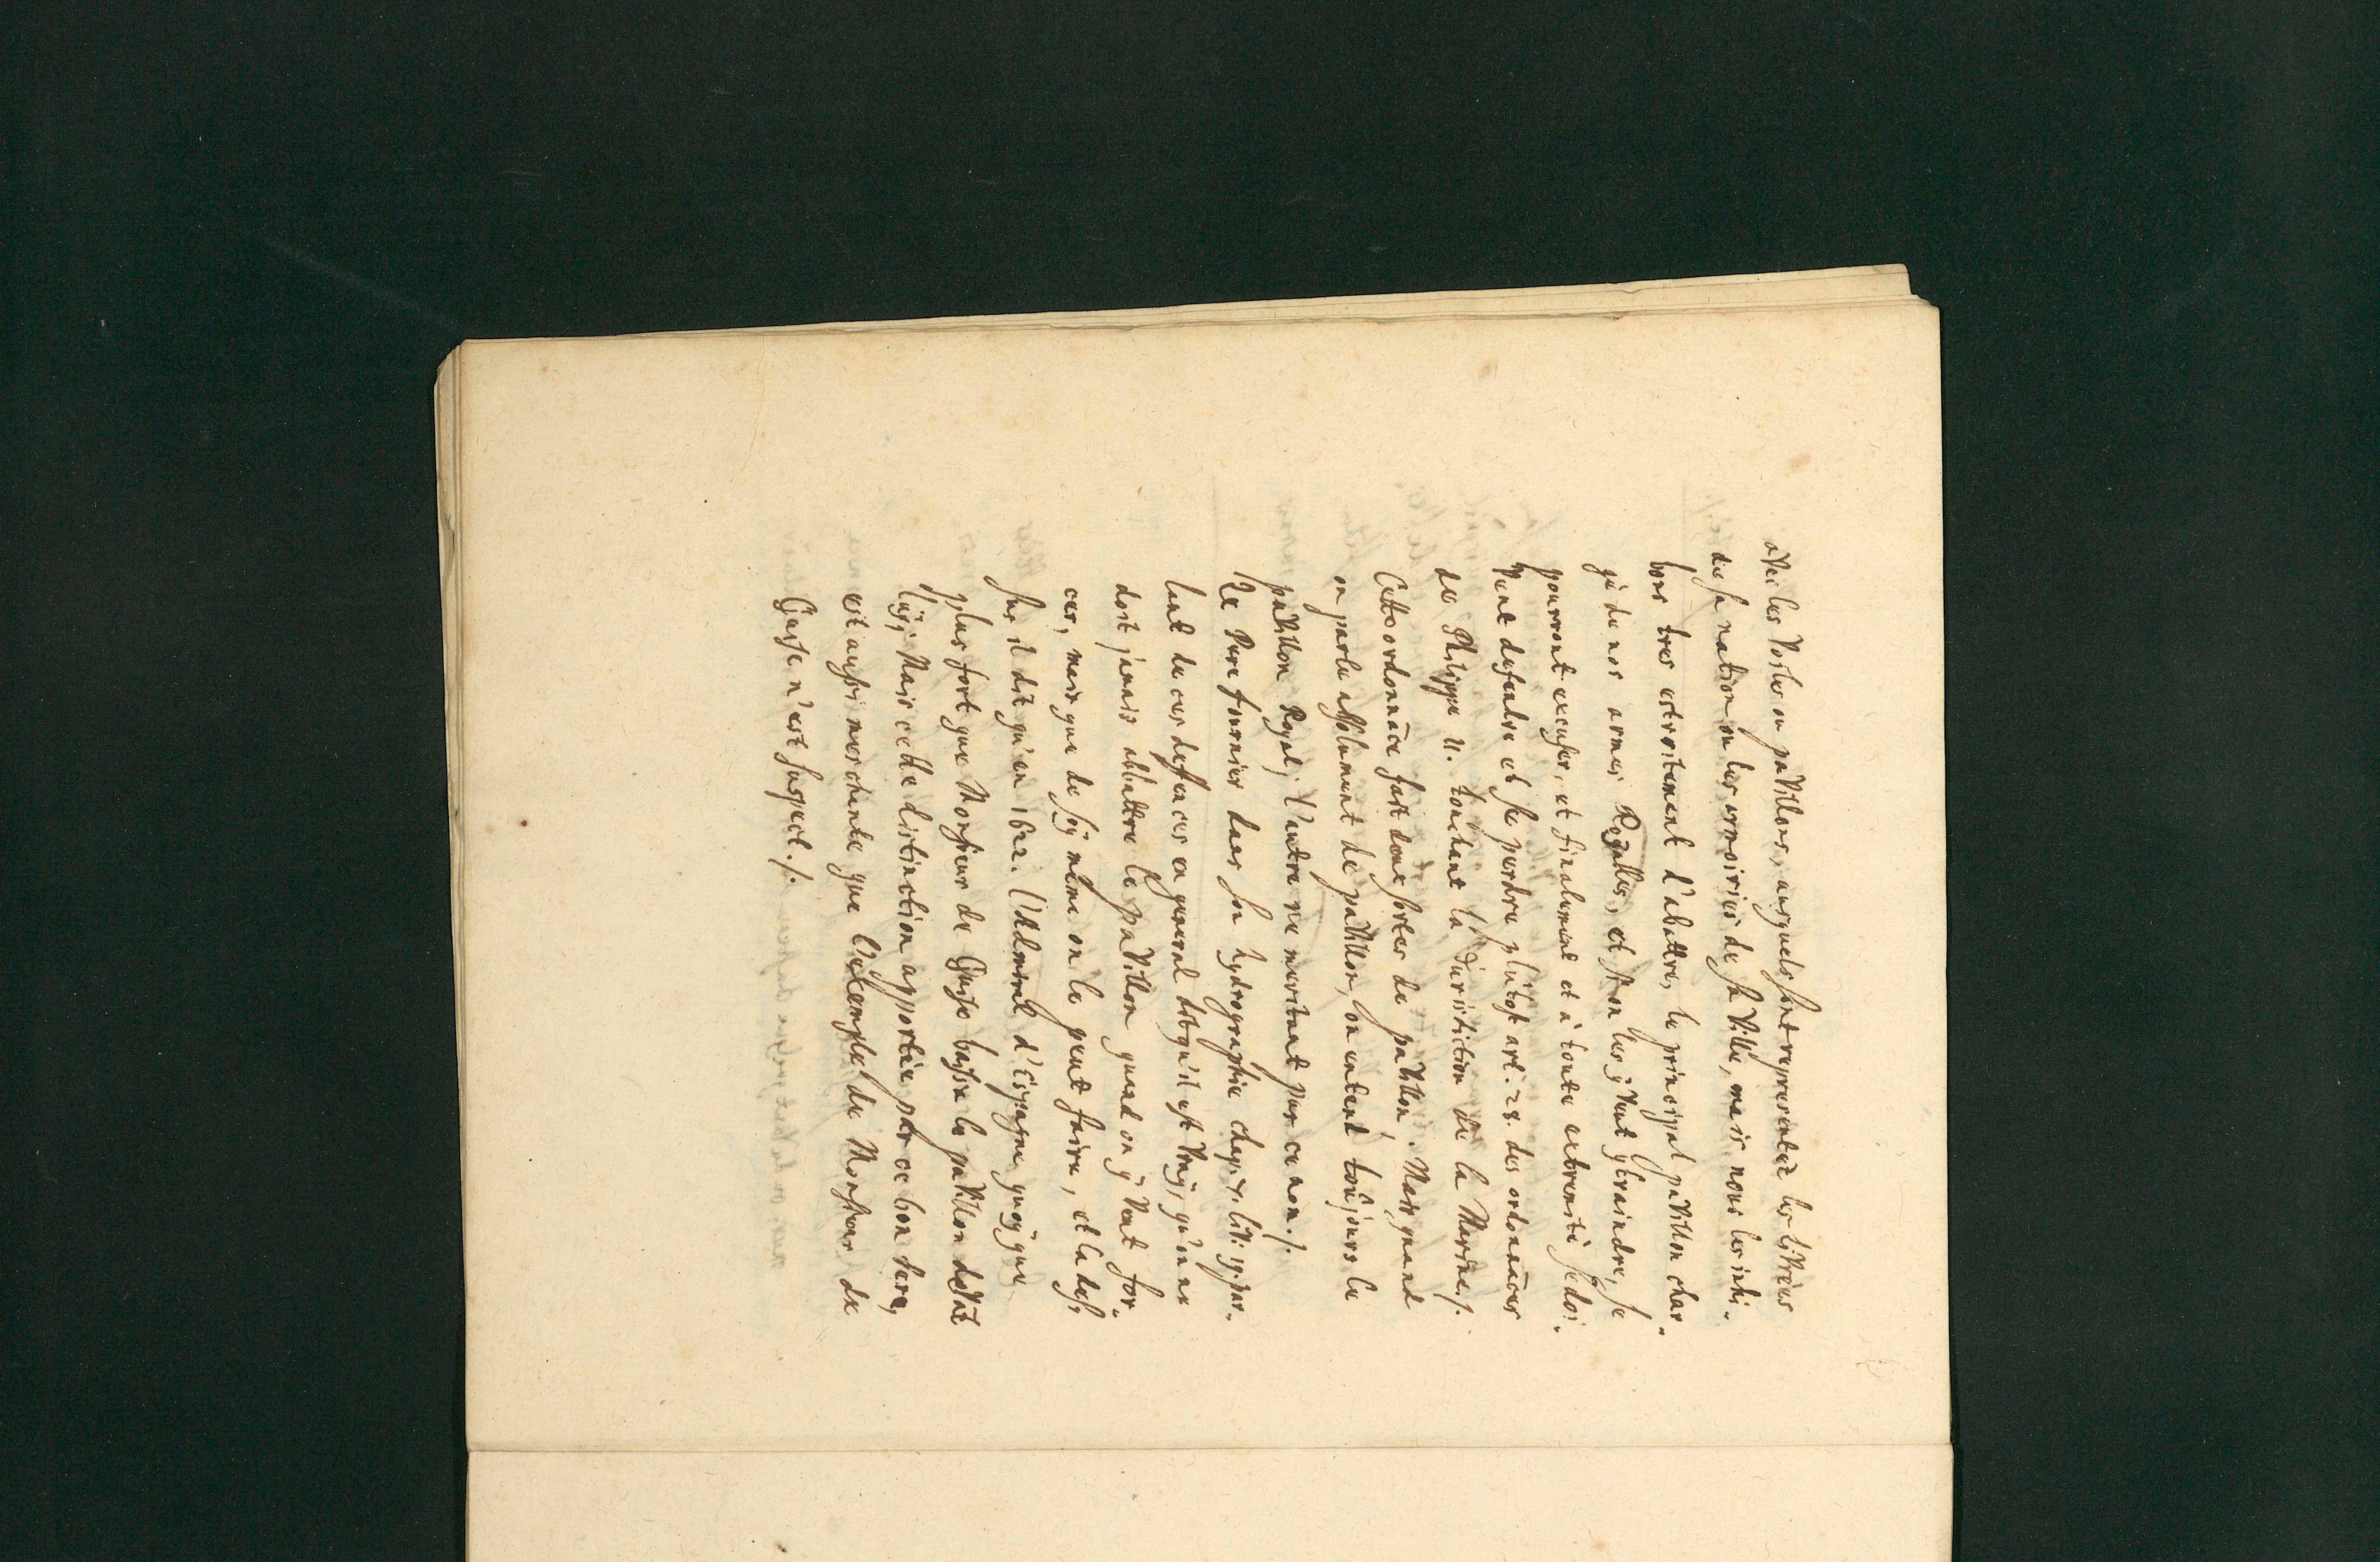 avec les voiles ou pavillons, auxquels sont representéz les livrées
de sa nation ou les armoiries de sa ville, mais nous les inhi-
bons tres estroitement d'abattre, le principal pavillon char-
gé de nos armes Royalles, et si on les y veut contraindre, se
pourront excuser, et finalement et à toute extremité se doi-
vent defendre et se perdre plûtost art. 28. des ordonnāces
de Philippe II. touchant la Jurisdiction de la Marine /.
Cette ordonnāce fait deux sortes de pavillon, Mais quand
on parle absolument de pavillon, on entend toûjours le
pavillon Royal; l'autre ne meritant pas ce nom /.
Le Pere fournier dans son hydrographie chap. liv. par-
lant de ces deffences en general dit qu'il est vray, qu'on ne
doit jamais abbattre le pavillon quand on y veut for-
cer, mais que de soy même on le peut faire, et la dess⁹
sus il dit qu'en 1622. l'Admiral d'Espagne quoy que
plus fort que Monsieur de Guise baissa le pavillon devāt
luy; Mais cette distinction apportée par ce bon Pere,
est aussi mesch​ante que l'exemple de Monsieur de
Guise n'est suspect /.